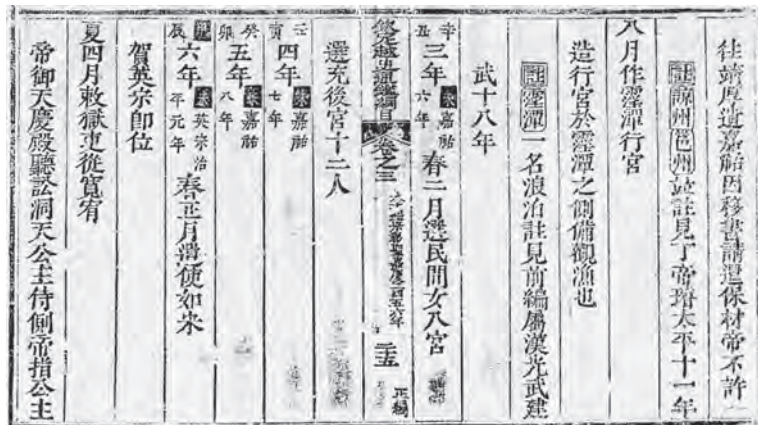 往靖厚遺嘉祐因移書請還保材帝不許
註諒州邕州並註見丁帝璿太平十一年
八月作靈潭行宮
造行宮於靈潭之側備觀漁也
註靈潭一名浪泊註見前編屬漢光武建
武十八年
辛丑三年宋嘉祐六年春二月選民間女入宮
欽定越史通鑑綱目 卷之三 正編
選充後宮十二人
壬寅四年宋嘉祐七年
癸卯五年宋嘉祐八年
甲辰六年宋英宗治平元年春正月遣使如宋
賀英宗卽位
夏四月敕獄吏從寬宥
帝御天慶殿聽訟洞天公主侍側帝指公主